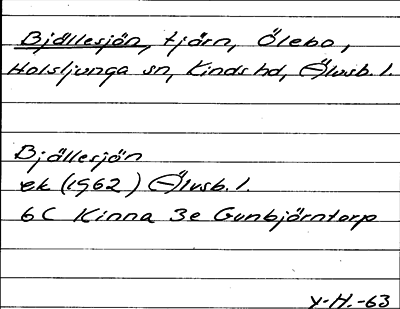 Bjällesjön, tjärn, Ölebo,
Holsljunga sn, Kinds hd, Älvsb. l.
Bjällesjön
ek (1962) Älvsb. l.
6C Kinna 3e Gunbjörntorp
Y-H.-63